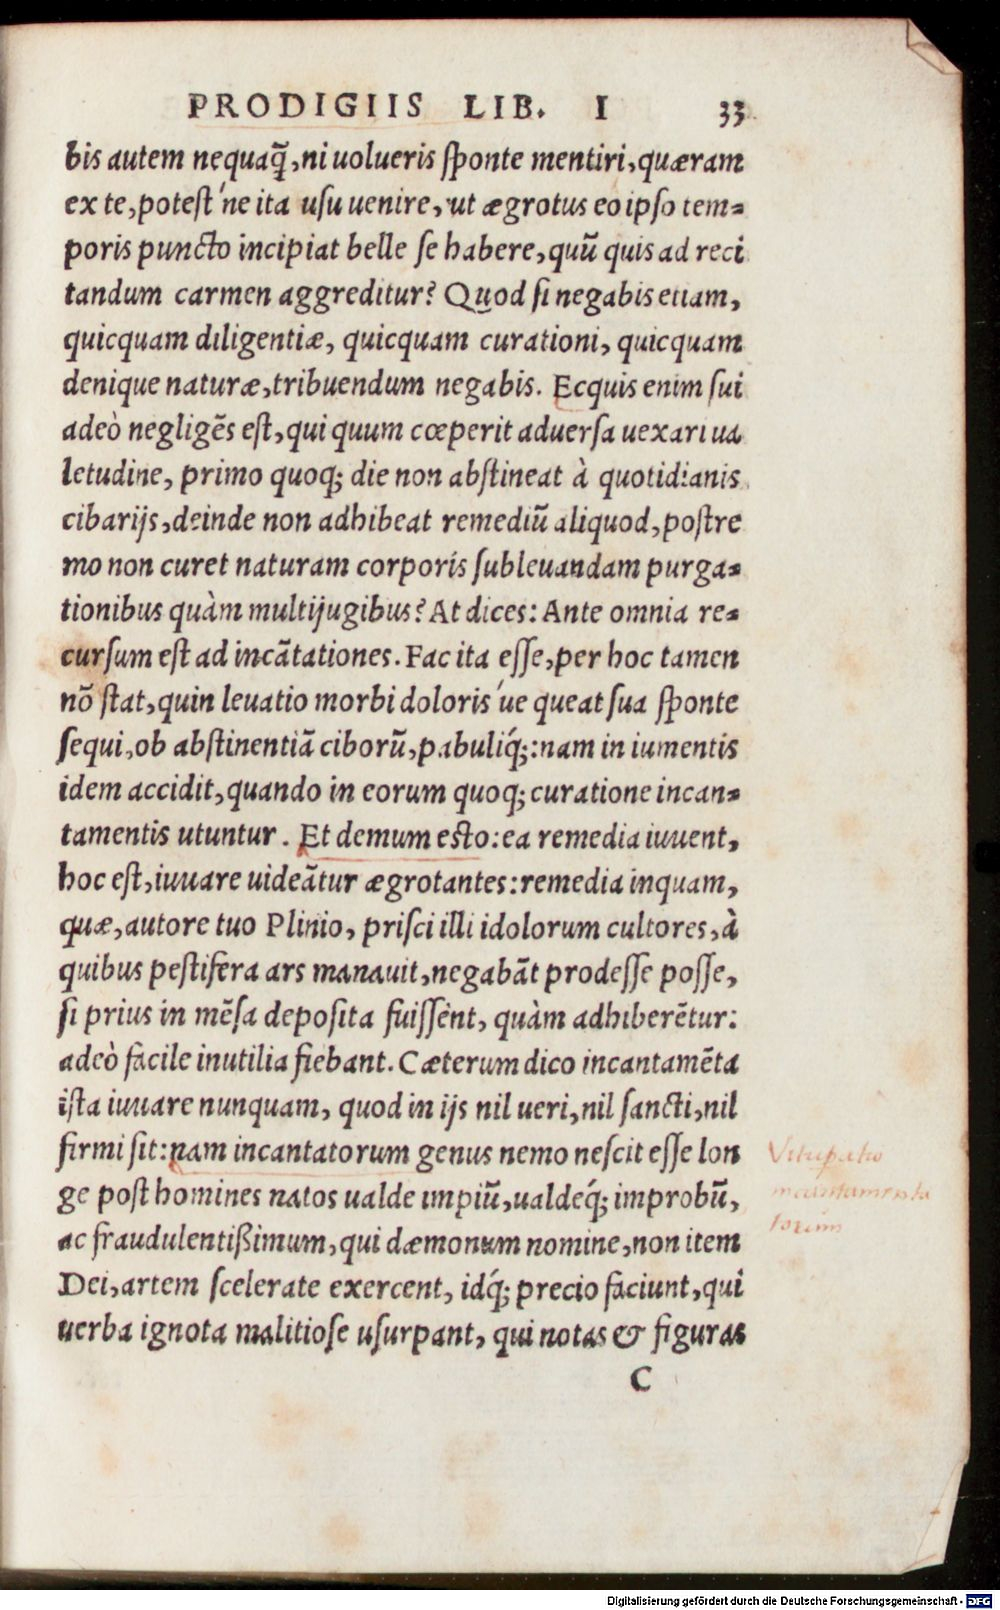 PRODIGIIS LIB. I 33
bis autem nequaq̃, ni uolueris ſponte mentiri, quæram
ex te, poteſt'ne ita uſu uenire, ut ægrotus eo ipſo tem-
poris puncto incipiat belle ſe habere, quũ quis ad reci
tandum carmen aggreditur? Quod ſi negabis etiam,
quicquam diligentiæ, quicquam curationi, quicquam
denique naturæ, tribuendum negabis. Ecquis enim ſui
adeò negligẽs eſt, qui quum cœperit aduerſa uexari ua
letudine, primo quoq; die non abſtineat à quotidianis
cibarijs, deinde non adhibeat remediũ aliquod, poſtre
mo non curet naturam corporis ſubleuandam purga-
tionibus quàm multijugibus? At dices: Ante omnia re-
curſum eſt ad incãtationes. Fac ita eſſe, per hoc tamen
nõ ſtat, quin leuatio morbi doloris'ue queat ſua ſponte
ſequi, ob abſtinentiã ciborũ, pabuliq́;: nam in iumentis
idem accidit, quando in eorum quoq; curatione incan-
tamentis utuntur. Et demum eſto: ea remedia iuuent,
hoc eſt, iuuare uideãtur ægrotantes: remedia inquam,
quæ, autore tuo Plinio, priſci illi idolorum cultores, à
quibus peſtifera ars manauit, negabãt prodeſſe poſſe,
ſi prius in mẽſa depoſita fuiſſent, quàm adhiberẽtur:
adeò facile inutilia fiebant. Cæterum dico incantamẽta
iſta iuuare nunquam, quod in ijs nil ueri, nil ſancti, nil
firmi ſit: nam incantatorum genus nemo neſcit eſſe lon
ge poſt homines natos ualde impiũ, ualdeq́; improbũ,
ac fraudulentißimum, qui dæmonum nomine, non item
Dei, artem ſcelerate exercent, idq́; precio faciunt, qui
uerba ignota malitioſe uſurpant, qui notas & figuras
C
Vitupatio
incantamenta
torum
Digitalisierung gefördert durch die Deutsche Forschungsgemeinschaft - DFG